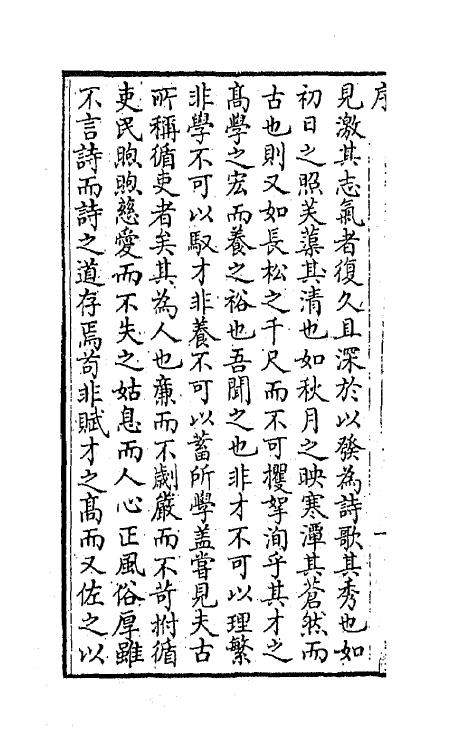 序
見激其志氣者復久且深於以發為詩歌其秀也如
初日之照芙蕖其清也如秋月之映寒潭其蒼然而
古也則又如長松之千尺而不可攖挐洵乎其才之
高學之宏而養之裕也吾聞之也非才不可以理繁
非學不可以馭才非養不可以蓄所學盖嘗見夫古
所稱循吏者矣其為人也亷而不劌嚴而不苛拊循
吏民煦煦慈愛而不失之姑息而人心正風俗厚雖
不言詩而詩之道存焉苟非賦才之高而又佐之以